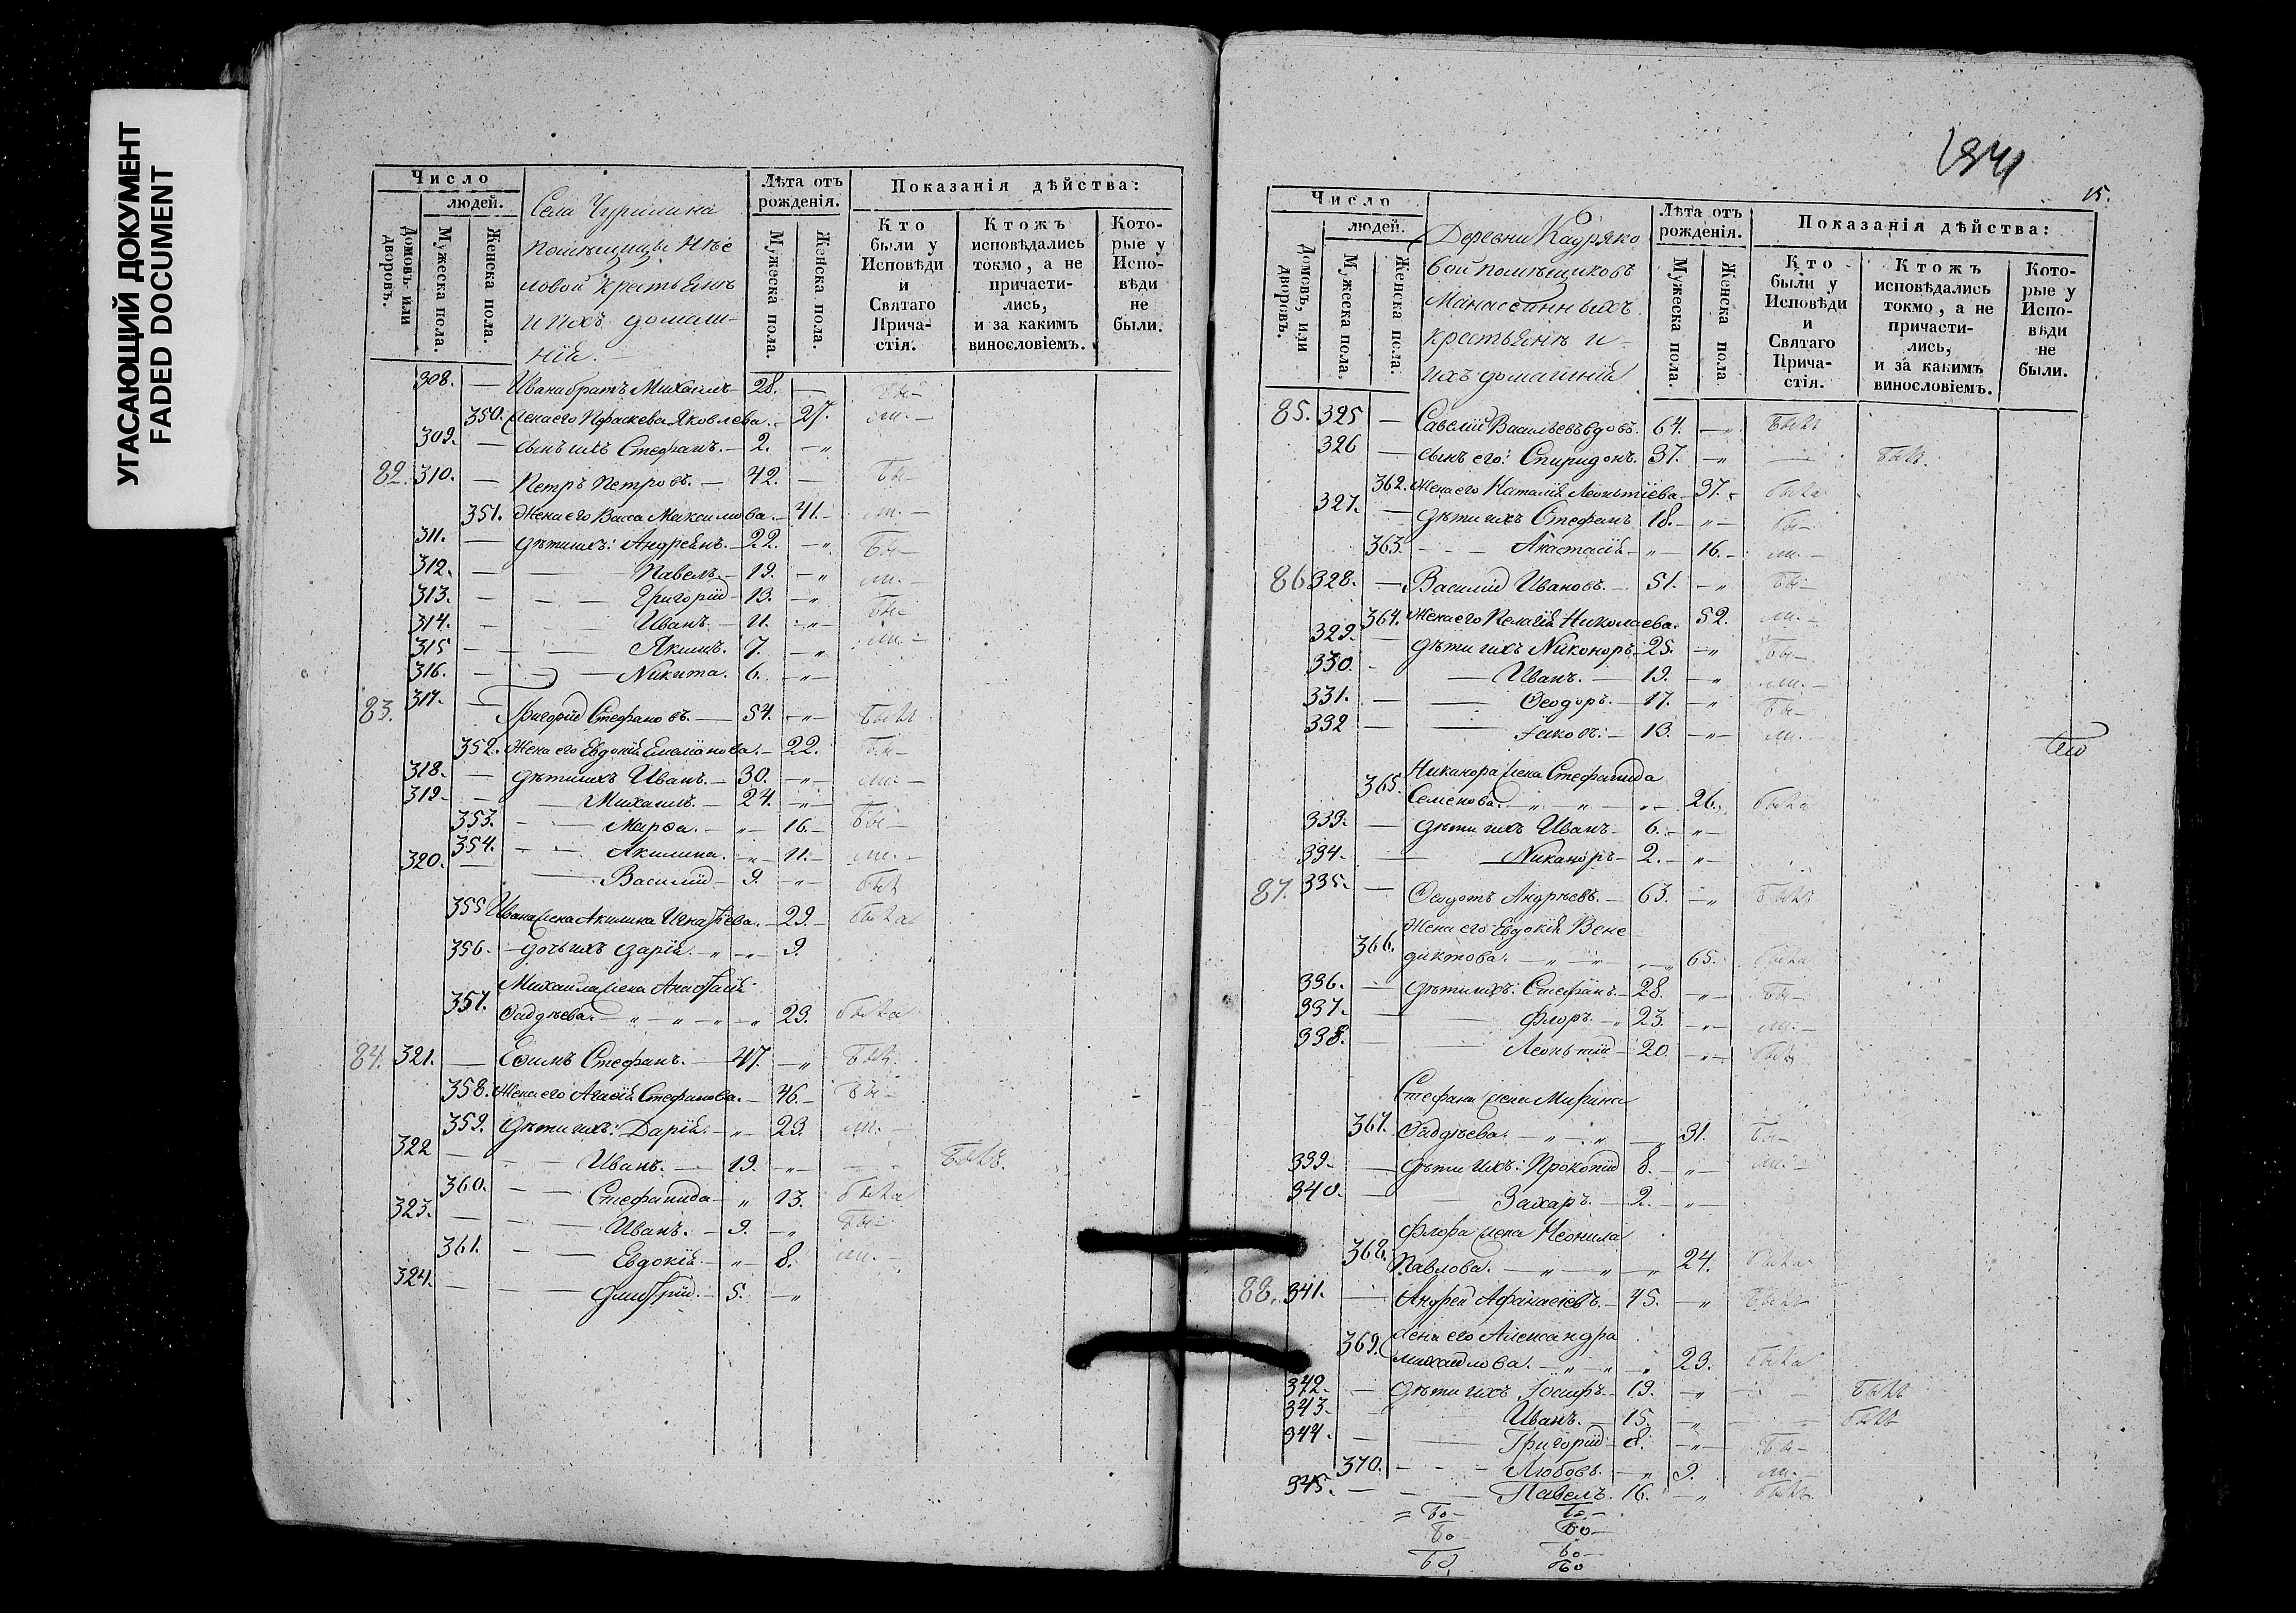 УГАСАЮЩИЙ ДОКУМЕНТ
FADED DOCUMENT
Число
людей.
Домовъ или дворовъ.
Мужеска пола.
Женска пола.
Села Чурилина
помѣщицы
ловой крестьянъ
и ихъ домаш-
нія.
Лѣта отъ рожденія.
Мужеска пола.
Женска пола.
Показанія дѣйства:
Кто были у Исповѣди и Святаго Прича-стія.
Ктожъ исповѣдались токмо, а не причасти-лись, и за какимъ винословіемъ.
Кото-рые у Испо-вѣди не были.
308. — Ивана братъ Михаилъ — 28. — бы-
350. жена его Параскева Яковлева. — 27. ли. —
309. — сынъ ихъ Стефанъ. — 2. — „
82. 310. — Петръ Петровъ. — 42. — бы-
351. Жена его Васса Максимова. — 41. — ли. —
311. — дѣти ихъ: Андрей — 22. — „ бы-
312. — — Павелъ. — 19. — „ ли. —
313. — — — Григорій — 13. — „ бы-
314. — — Иванъ. — 11. — „ — ли. —
315 — — — Якимъ. 7. — „
316. — — — Никита. 6. — „ —
83. 317. — Григорій Стефановъ. — 54. — „ — былъ
352. Жена его Евдокія Емеліанова. — 22. бы-
318. — дѣти ихъ Иванъ. — 30. — „ — ли. —
319. — — Михаилъ. — 24. — „ —
353. — — Марѳа. — „ — 16. — бы-
354. — — Акилина. — „ — 11. — ли. —
320. — — Василій — 9. — „ — былъ
355 Ивана жена Акилина Игнатіева. — 29. — была
356. — дочь ихъ Дарія. — „ — „ — 9.
Михаила жена Анастасія
357. Фаддѣева. — „ — „ — „ — „ 23. была
84. 321. — Еѳимъ Стефанъ. — 47. — „ былъ
358. Жена его Агаѳія Стефанова. — 46. — бы-
359. дѣти ихъ: Дарія. — „ — 23. ли. —
322 — — — Иванъ. — 19. — „ — — былъ.
360. — — Стефанида — „ 13. была
323. — — — Иванъ. — 9. — „ бы-
361. — — Евдокія. — „ — 8. ли. —
324. — — — Димитрій. — 5. — „
1841
15.
Число
людей.
Домовъ, или дворовъ.
Мужеска пола.
Женска пола.
Деревни Кадряко
вой помѣщиковъ
Манассеиныхъ
крестьянъ и
ихъ домашнія
Лѣта отъ рожденія.
Мужеска пола.
Женска пола
Показанія дѣйства:
Кто были у Исповѣди и Святаго Прича-стія.
Ктожъ исповѣдались токмо, а не причасти-лись, и за какимъ винословіемъ.
Кото-рые у Испо-вѣди не были.
85. 325 — Савелій Васильевъ вдовъ. 64. — „ былъ
326 — сынъ его: Спиридонъ. 37. — „ — былъ.
362. Жена его Наталія Леонтіева — 37. — была
327. — дѣти ихъ Стефанъ 18. — „ — бы-
363. — — — Анастасія — „ — 16. — ли. —
86 328. — Василій Ивановъ. — 51. — „ бы-
364. Жена его Пелагія Николаева. 52. ли. —
329. — дѣти ихъ Никоноръ. — 25. — „ бы-
330. — — Иванъ. — 19. — „ ли. —
331. — — Ѳеодоръ. — 17. — „ бы-
332 — — Іаковъ. — 13. — „ — ли. —
Никанора жена Стефанида
365. Семенова. — „ — „ — „ — 26. была
333. — дѣти ихъ Иванъ. — 6. — „ —
334. — — Никаноръ — 2. — „ —
87. 335. — Ѳедотъ Андреевъ. — 63. — „ былъ
Жена его Евдокія Вене-
366. диктова. — „ — „ — „ — „ 65. была
336. — дѣти ихъ: Стефанъ. — 28. — „ — бы-
337. — — Флоръ. — „ 23. — „ — ли. —
338. — — Леонтій — 20. — „ — былъ
Стефана жена Марина
367. Фаддѣева. — „ — „ — „ 31. бы-
339. — дѣти ихъ: Прокопій 8. — „ — ли. —
340. — — Захаръ. — 2. — „ —
Флора жена Неонила
368. Павлова. — „ — „ — „ 24. была
88. 341. — Андрей Афанасіевъ. — 45. — „ былъ
жена его Александра
369. михайлова. — „ — „ — „ 23. была
342. — дѣти ихъ Іосифъ. — 19. — „ — — былъ
343. — Иванъ. — 15. — „ — — былъ
344. — — Григорій — 8. — „ — бы-
370. — — — Любовь. — „ 9. ли. —
345. — — — Павелъ. 16. — „ былъ.